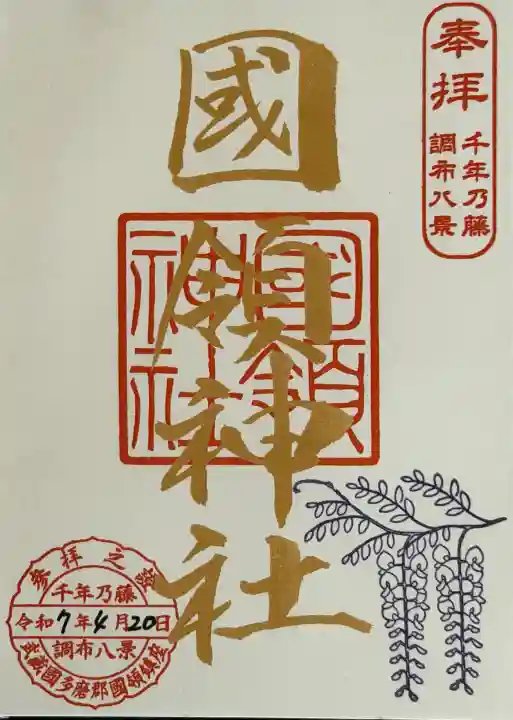 奉拝
千年乃藤
調布八景
國領神社
國領
神社
参拝之証
千年乃藤
令和7年4月20日
調布八景
武蔵國多磨郡國領鎮座